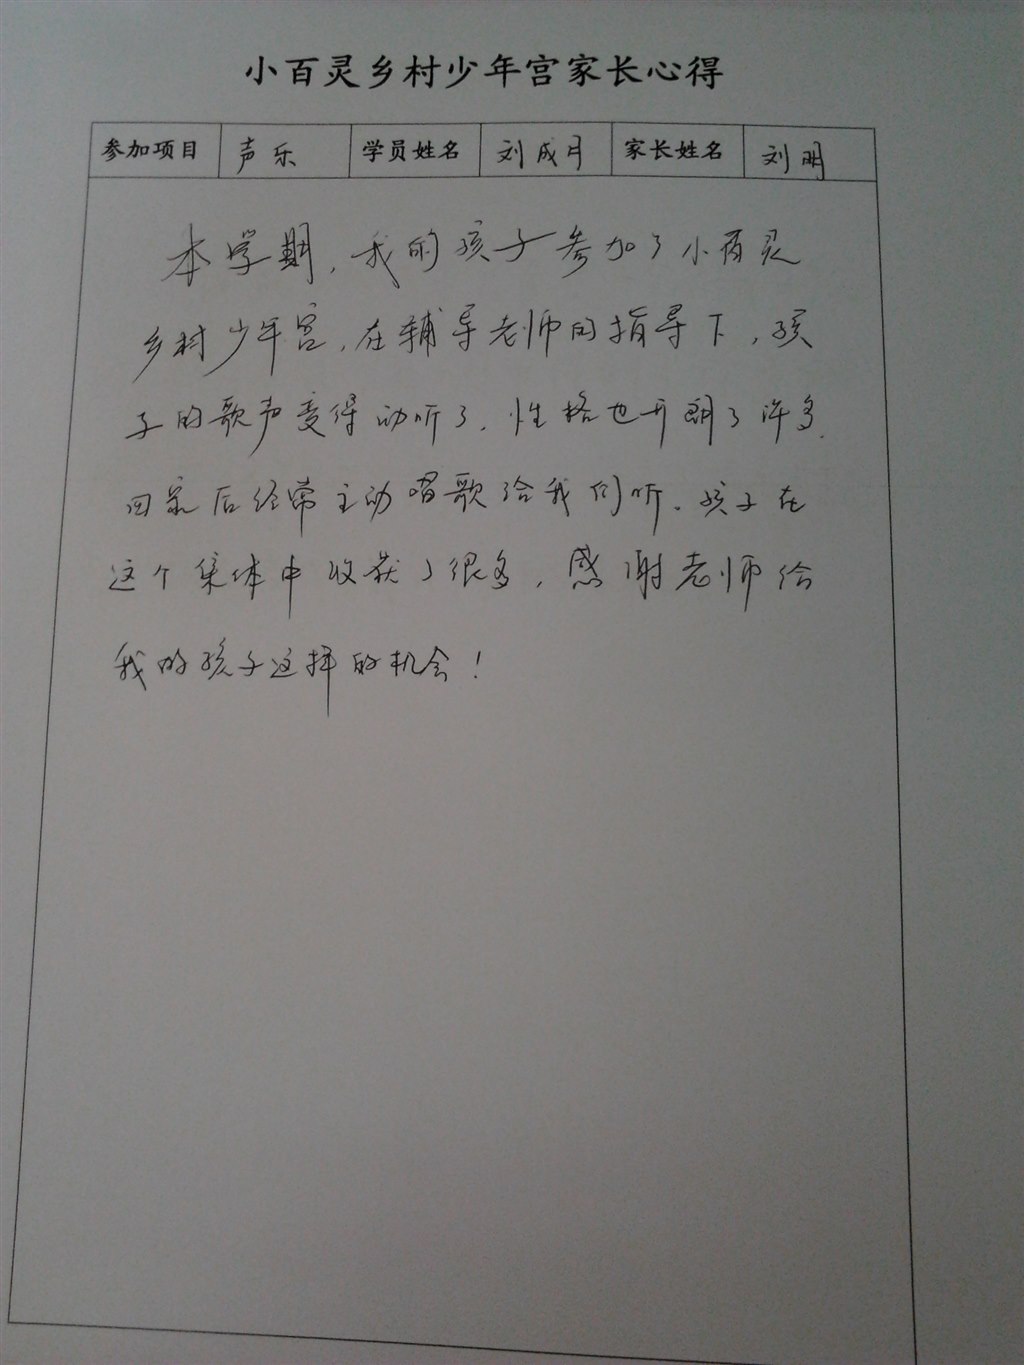 小百灵乡村少年宫家长心得
参加项目 声乐 学员姓名 刘成月 家长姓名 刘明
本学期,我的孩子参加了小百灵
乡村少年宫,在辅导老师的指导下,孩
子的歌声变得动听了,性格也开朗了许多,
回家后经常主动唱歌给我们听。孩子在
这个集体中收获了很多,感谢老师给
我的孩子这样的机会!